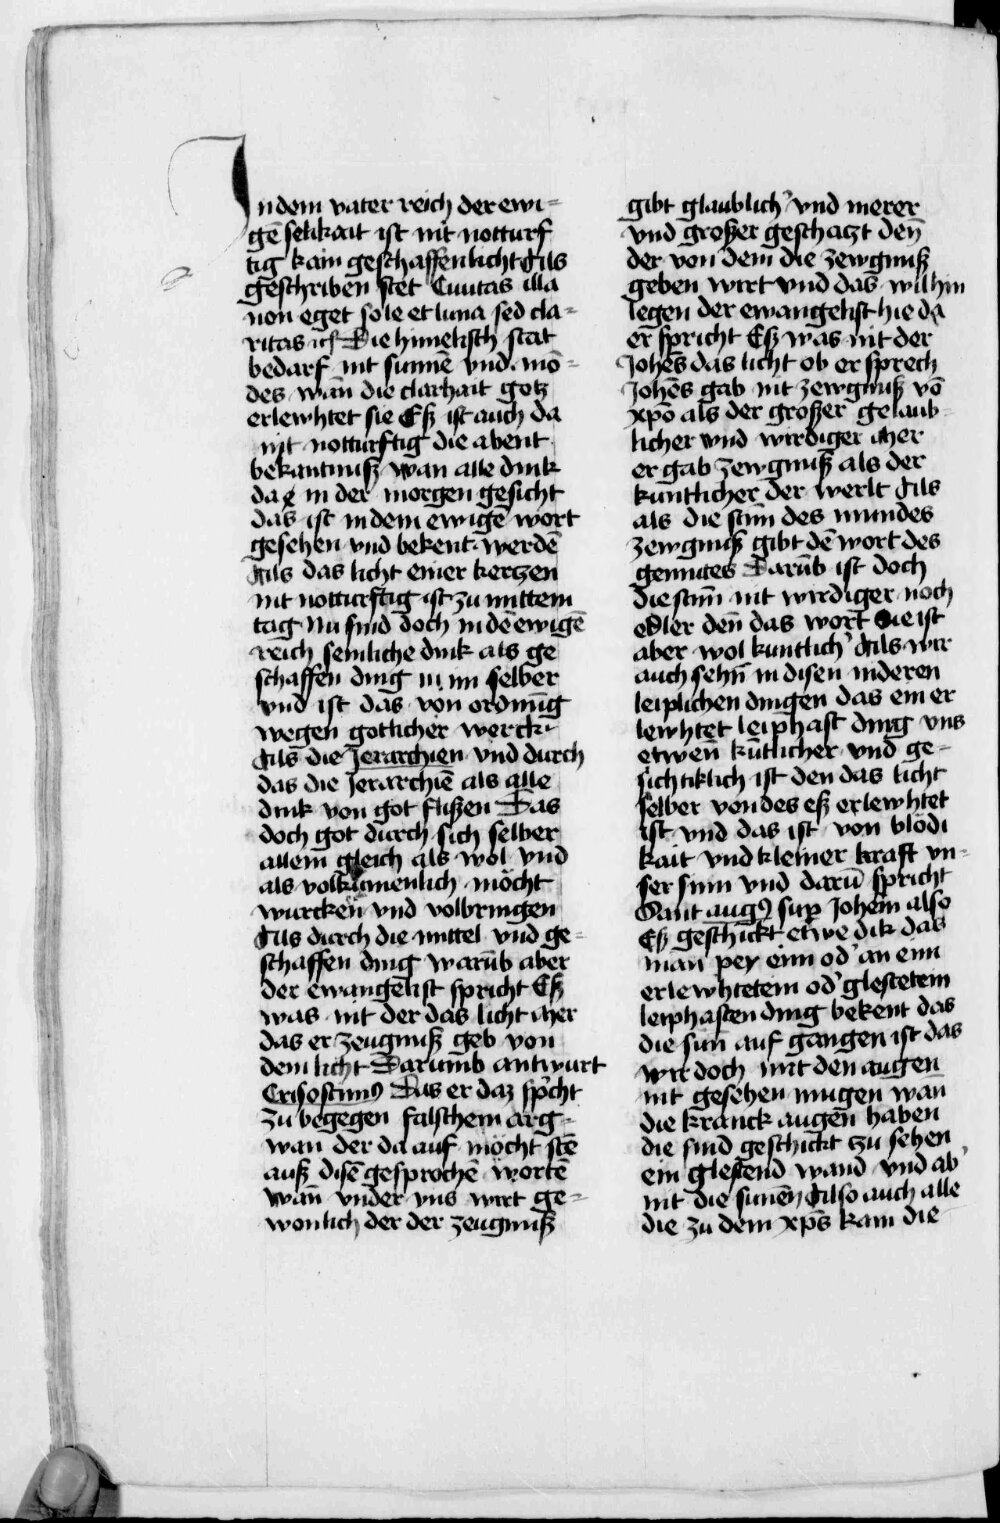 Indem vater reich der ewi-
gē selikait ist nit notturf
tig kain geschaffen licht Als
geschriben stet Ciuitas illa
non eget sole et luna sed cla-
ritas Die himelisch stat
bedarf nit sunnē vnd mō-
des wān die clarhait gotz
erlewhtet sie Eß ist auch da
nit notturftig die abent
bekantnuß wan alle dink
da in der morgen gesicht
das ist in dem ewigē wort
gesehen vnd bekent werdē
Als das licht einer kertzen
nit notturftig ist zu mittem
tag Nu sind doch in dē ewigē
reich semliche dink als ge
schaffen ding in im selber
vnd ist das von ordnūg
wegen gotlicher werck
Als die Jerarchien vnd durch
das die Jerarchiē als alle
dink von got flißen Das
doch got durch sich selber
allein gleich als wol vnd
als volkumenlich möcht
wurcken vnd volbringen
Als durch die mittel vnd ge-
schaffen ding warūb aber
der ewangelist spricht Eß
was nit der das licht mer
das er zeugnuß geb von
dem licht Darumb antwurt
Crisostimꝰ Das er daz sp͛cht
zu begegen falschem arg-
wan der da auf möcht stē
auß disē gesprochē wortē
wān vnder vns wirt ge-
wonlich der der zeugnuß
gibt glaublich͛ vnd merer
vnd großer geschatzt den̄
der von dem die zewgnuß
geben wirt vnd das wil hin
legen der ewangelist hie da
er spricht Eß was nit der
Johēs das licht ob er sprech
Johēs gab nit zewgnuß vō
xpō als der großer gelaub-
licher vnd wirdiger mer
er gab zewgnuß als der
kuntlicher der werlt Als
als die stim̄ des mundes
zewgnuß gibt dē wort des
gemutes Darūb ist doch
die stim̄ nit wirdiger noch
edler den̄ das wort Sie ist
aber wol kuntlich͛ Als wir
auch sehn̄ in disen nideren
leiplichen dingen das ein er
lewhtet leiphaft ding vns
etwen kūtlicher vnd ge-
sichtiklich ist den das licht
selber von des eß erlewhtet
ist vnd das ist von blödi
kait vnd kleiner kraft vn-
ser sinn vnd darū spricht
Sant augꝰ sup Johēm also
Eß geschickt etwe dik das
man pey eim od͛ an eim
erlewhtetem od͛ glestetem
leiphaften ding bekent das
die sun auf gangen ist das
wir doch mit den augen
nit gesehen mugen wan
die kranck augen̄ haben
die sind geschickt zu sehen
ein glestend wand vnd ab͛
nit die sunen̄ Also auch alle
die zu dem xp̄s kam die